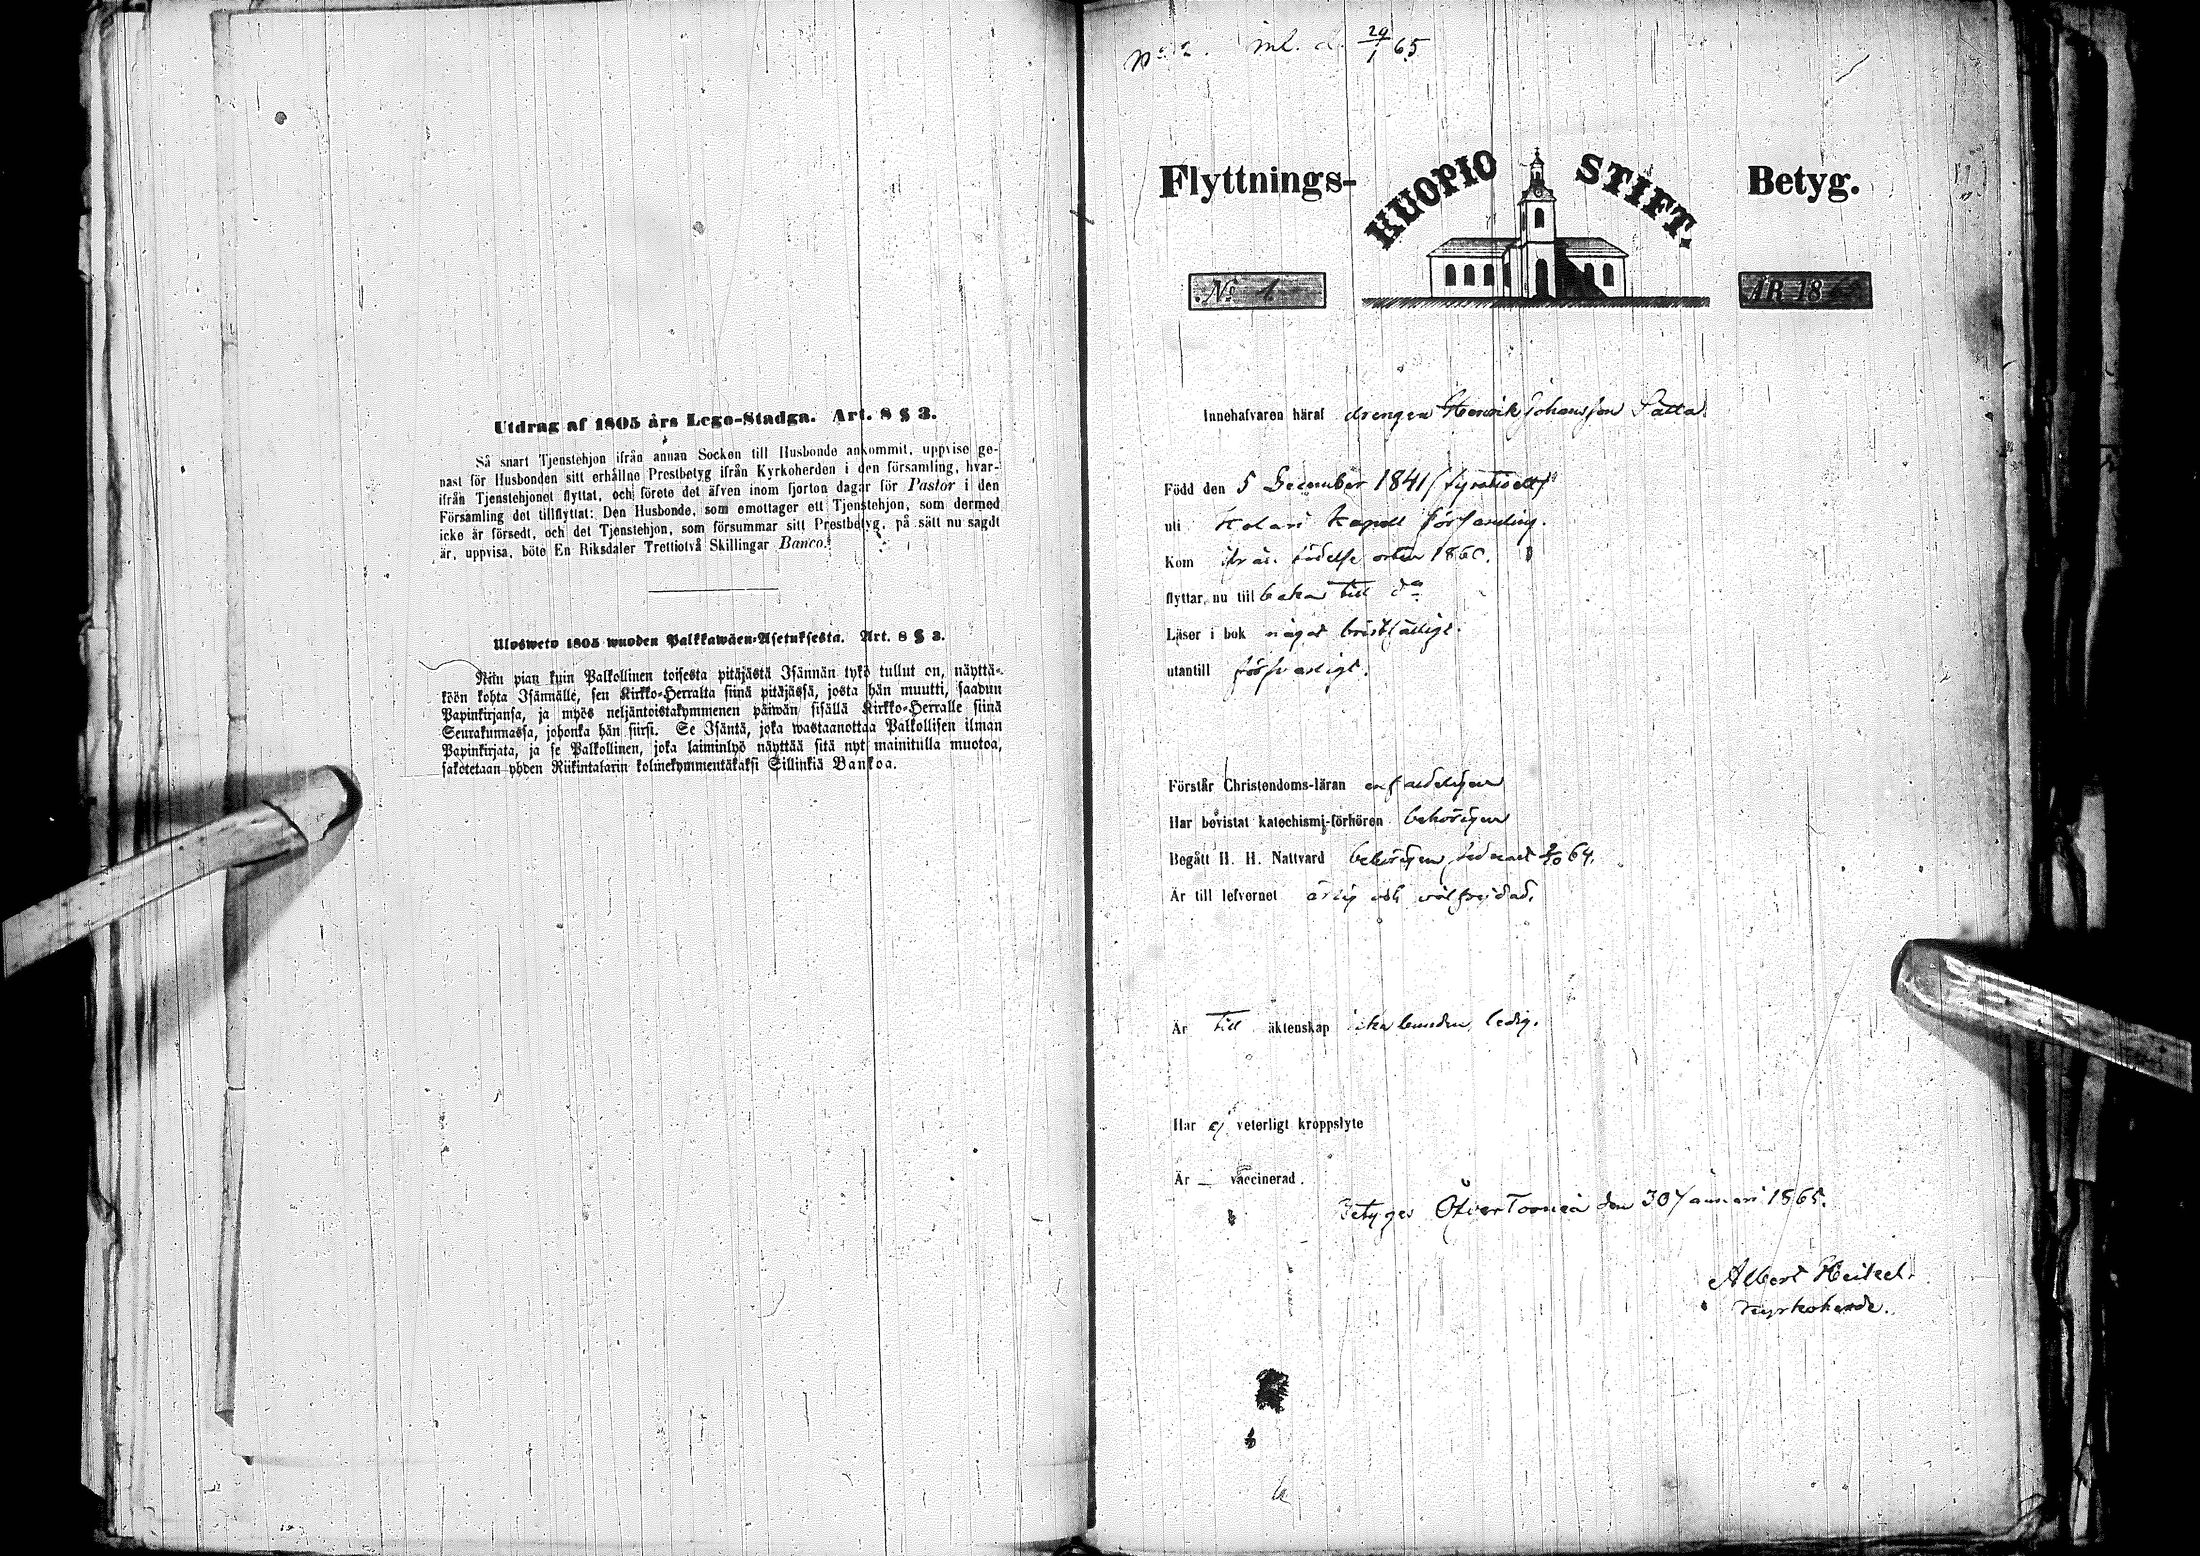 Utdrag af 1805 års Lego-Stadga. Art. 8 § 3.
Så snart Tjenstehjon ifrån annan Socken till Husbonde ankommit, uppvise ge-
nast för Husbonden sitt erhållne Prestbetyg ifrån Kyrkoherden i den församling, hvar-
ifrån Tjenstehjonet flyttat, och förete det äfven inom fjorton dagar för Pastor i den
Församling det tillflyttat: Den Husbonde, som emottager ett Tjenstehjon, som dermed
icke är försedt, och det Tjenstehjon, som försummar sitt Prestbetyg, på sätt nu sagdt
är, uppvisa, böte En Riksdaler Trettiotvå Skillingar Banco.
Ulosweto 1805 wuoden Palkkawäen-Asetuksesta. Art. 8 § 3.
Niin pian kuin Palkollinen toisesta pitäjästä Isännän tykö tullut on, näyttä-
köön kohta Isännälle, sen Kirkko-Herralta siinä pitäjässä, josta hän muutti, saadun
Papinkirjansa, ja myös neljäntoistakymmenen päiwän sisällä Kirkko-Herralle siinä
Seurakunnassa, johonka hän siirsi. Se Isäntä, joka wastaanottaa Palkollisen ilman
Papinkirjata, ja se Palkollinen, joka laiminlyö näyttää sitä nyt mainitulla muotoa,
sakotetaan yhden Riikintalarin kolmekymmentäkaksi Sillinkiä Bankoa.
No 2. inl. d. 29/1 65
Flyttnings- KUOPIO STIFT. Betyg.
No 1 ÅR 18
Innehafvaren häraf drengen Henrik Johansson
Född den 5 December 1841 (fyrationett)
uti Kolari kapell församling.
Kom ifrån födelse orten 1860.
flyttar nu till baka till do
Läser i bok något bristfälligt.
utantill försvarligt.
Förstår Christendoms-läran enfaldeligen
Har bevistat katechismi-förhören behörigen
Begått H. H. Nattvard behörigen, senast 64.
Är till lefvernet ärlig och välfrejdad.
Är till äktenskap icke bunden, ledig.
Har ej veterligt kroppslyte
Är — vaccinerad.
Betygar ÖfverTorneå den 30 Januari 1865.
Albert Heikel.
Kyrkoherde.